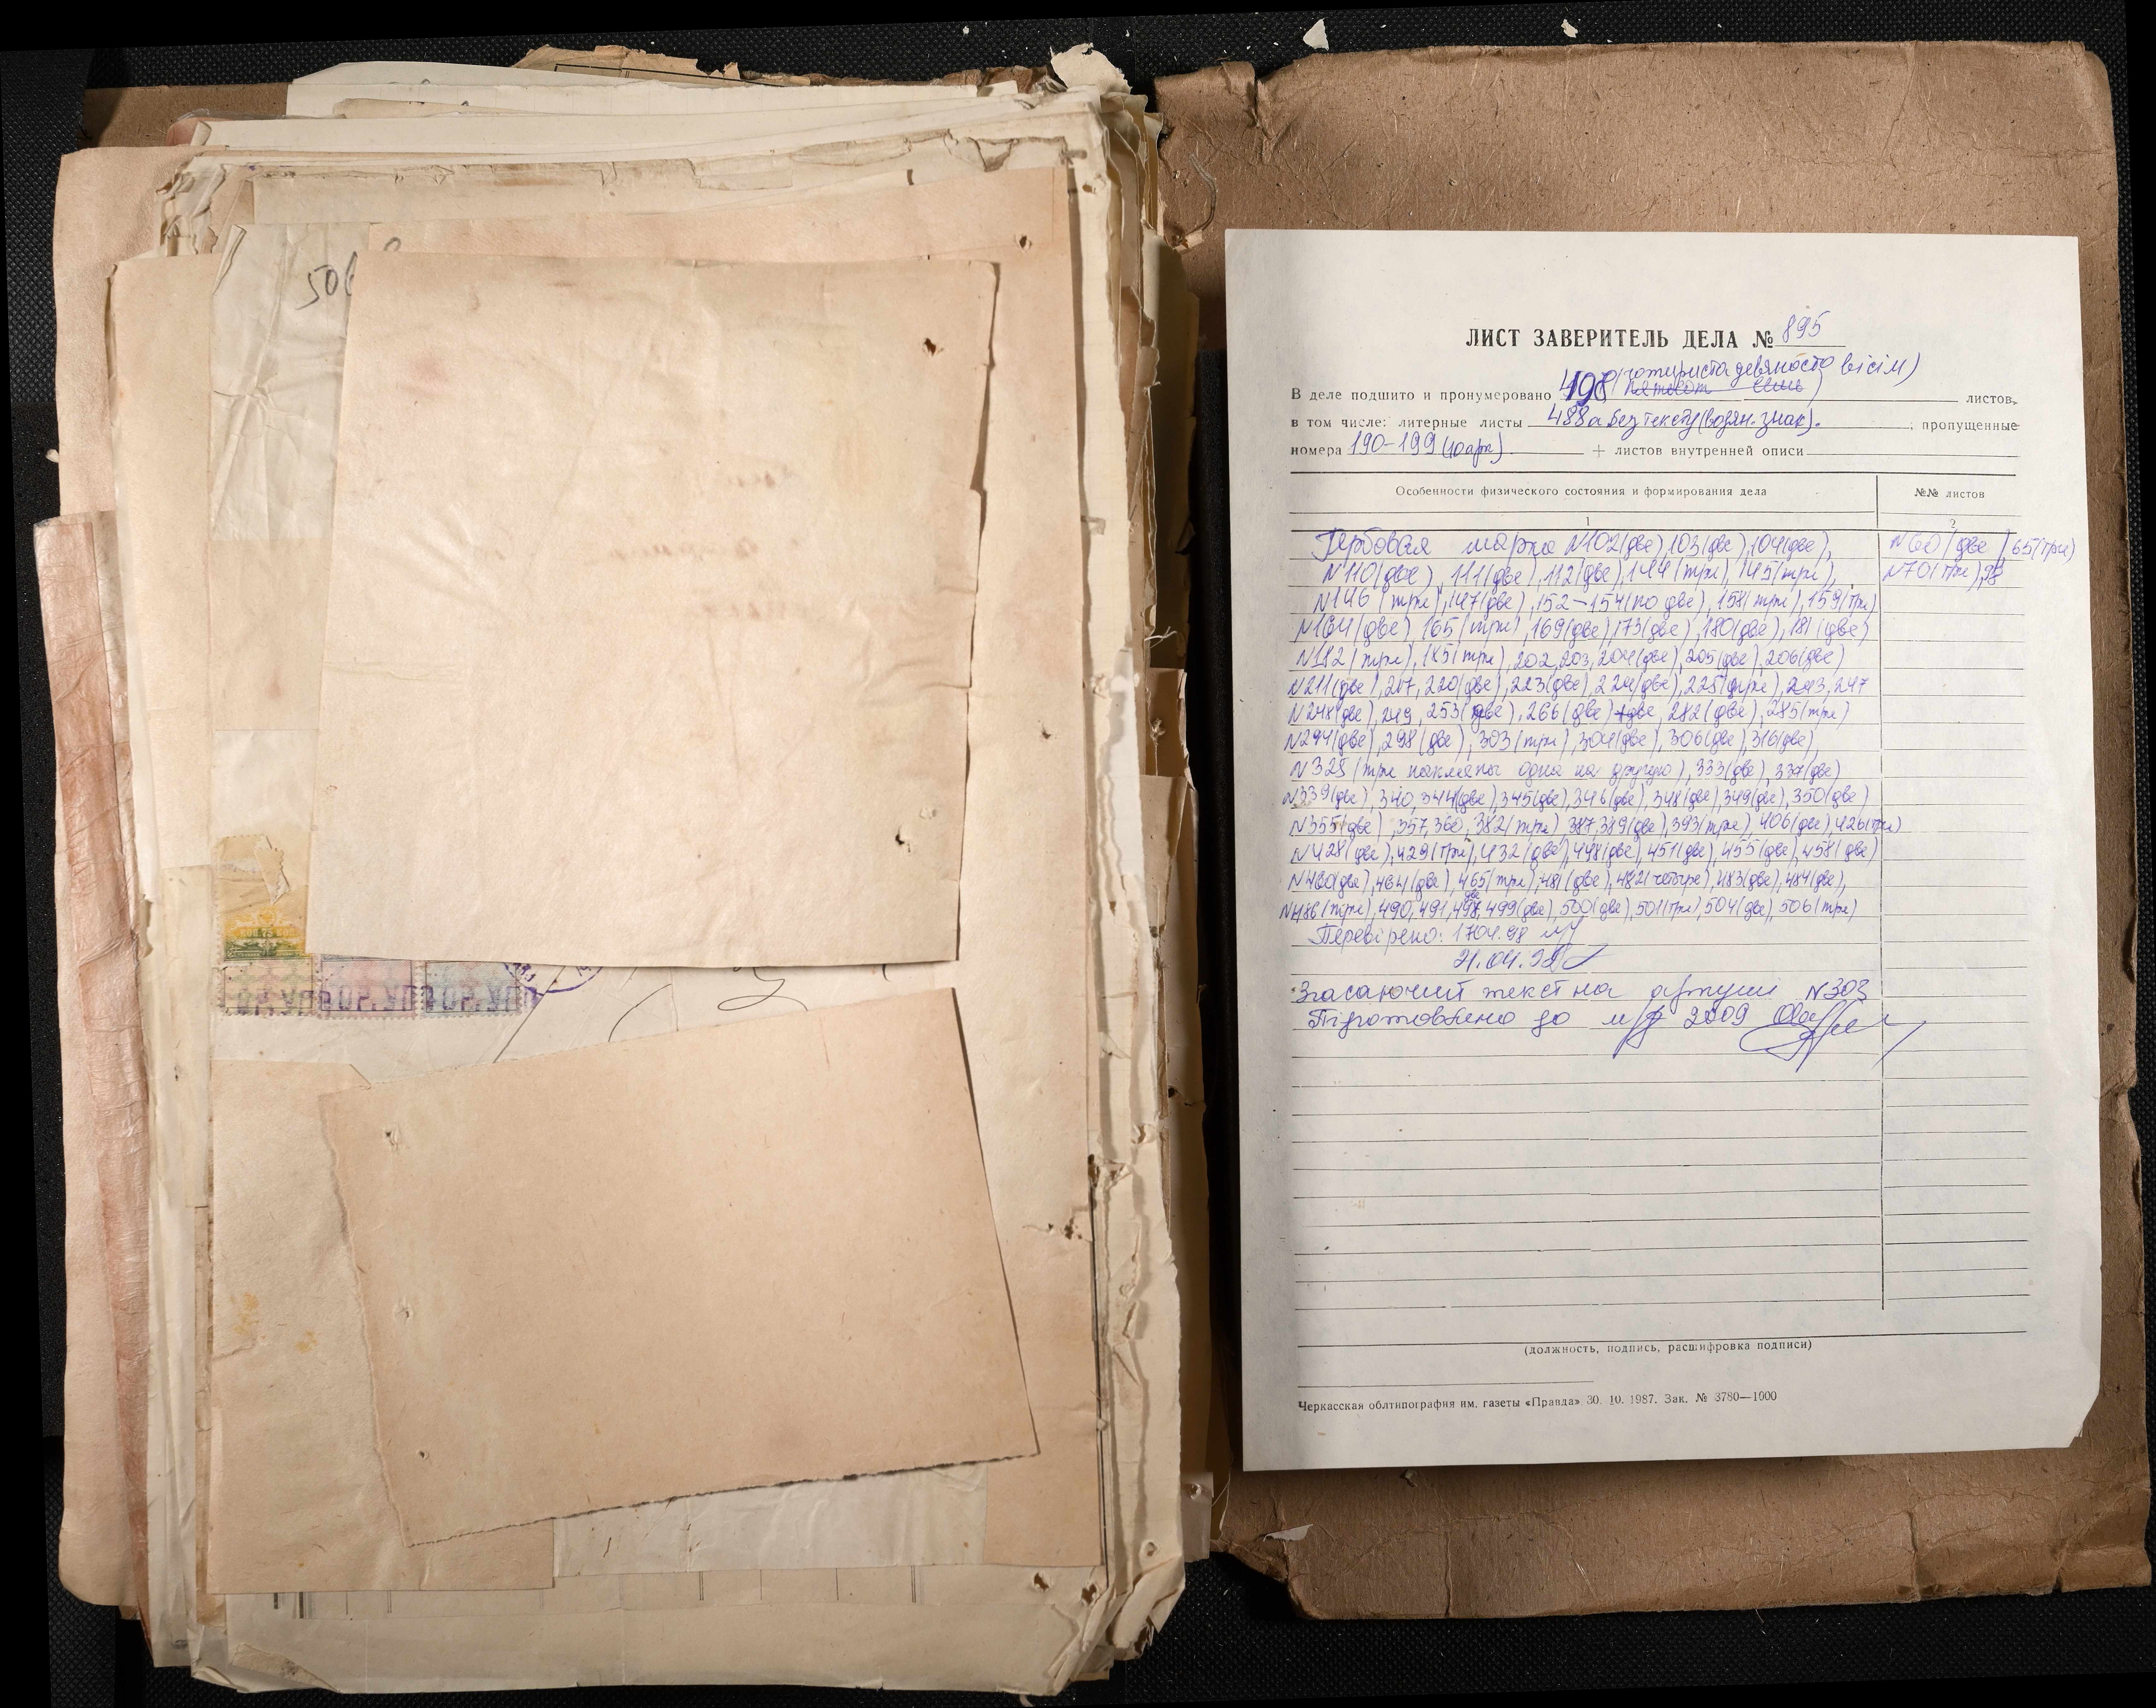 ЛИСТ ЗАВЕРИТЕЛЬ ДЕЛА № 895
(чотириста девяносто вісім)
В деле подшито и пронумеровано 498 листов,
в том числе: литерные листы 488а без тексту (водян. знак). ; пропущенные
номера 190-199 (10 арк) + листов внутренней описи
Особенности физического состояния и формирования дела
№№ листов
1
2
Гербовая марка N102(две), 103(две), 104(две),
N60(две), 65(три)
N110(две), 111(две), 112(две), 144(три), 145(три),
N70(три), 98
N146(три), 147(две), 152-154(по две), 158(три), 159(три)
N164(две), 165(три), 169(две), 173(две), 180(две), 181(две)
N182(три), 185(три), 202, 203, 204(две), 205(две), 206(две)
N211(две), 217, 220(две), 223(две), 224(две), 225(три), 243, 247
N248(две), 249, 253(две), 266(две) 282(две), 285(три)
N294(две), 298(две), 303(три), 304(две), 306(две), 316(две),
N325(три наклеены одна на другую), 333(две), 337(две)
N339(две), 340, 344(две), 345(две), 346(две), 348(две), 349(две), 350(две)
N355(две), 357, 360, 382(три), 387, 389(две), 393(три), 406(две), 426(три)
N428(две), 429(три), 432(две), 448(две), 451(две), 455(две), 458(две)
N460(две), 464(две), 465(три), 481(две), 482(четыре), 483(две), 484(две),
N486(три), 490, 491, 498, 499(две), 500(две), 501(три), 504(две), 506(три)
Перевірено: 17.04.98
21.04.98
Згасаючий текст на аркуші N303
Підготовлено до м/ф 2009
(должность, подпись, расшифровка подписи)
Черкасская облтипография им. газеты «Правда» 30. 10. 1987. Зак. № 3780—1000
506
КОП 75 КОП